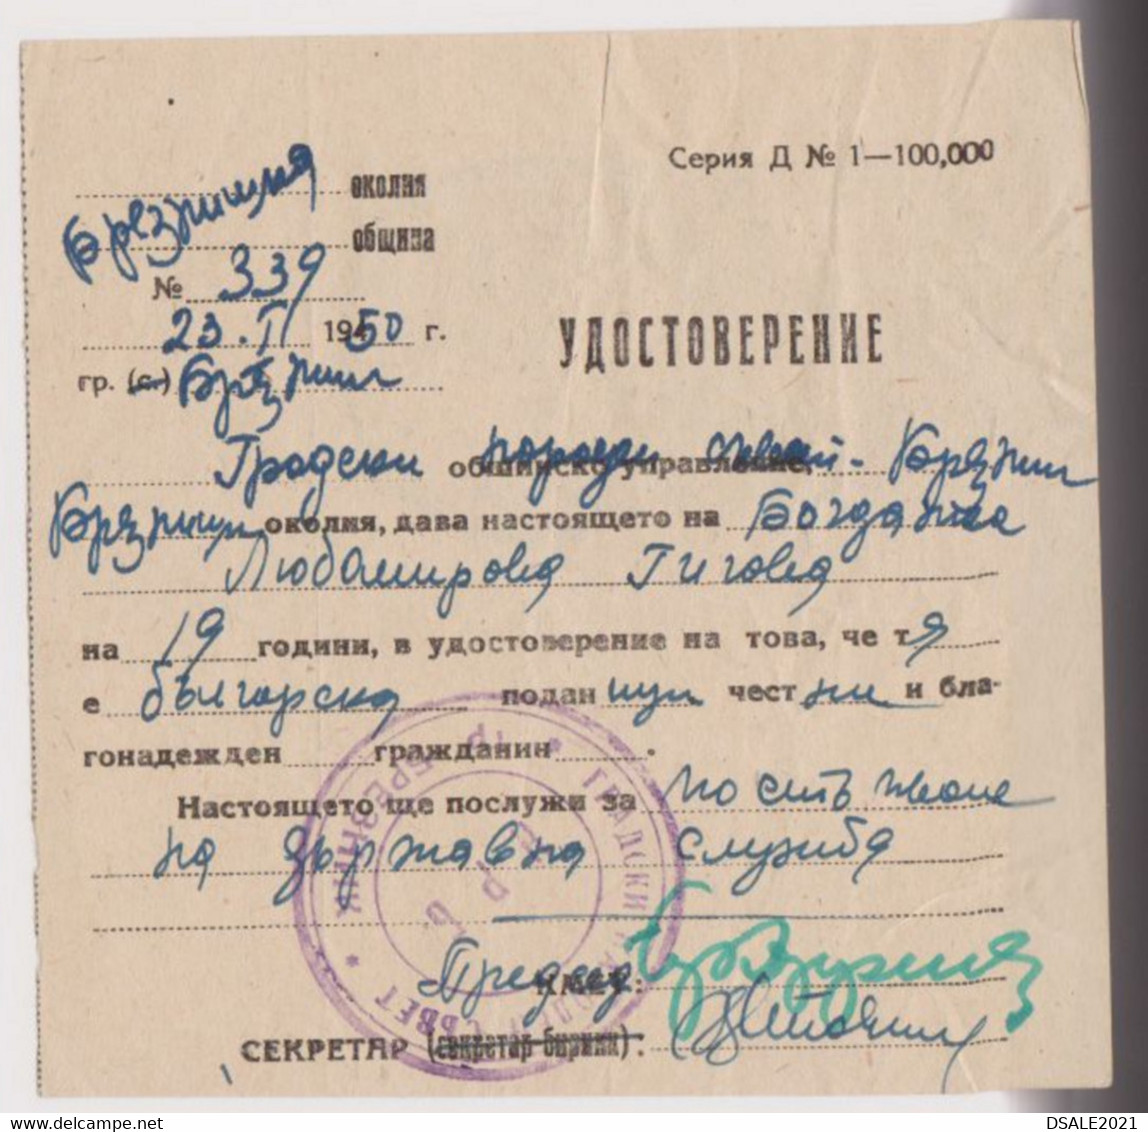 Серия Д № 1—100,000
околия
Брезнишка
община
№ 339
23.II 1950 г.
гр. (с.) Брезник
УДОСТОВЕРЕНИЕ
Градски народен съвет - Брезник
общинско управление,
Брезнишка околия, дава настоящето на Богданка
Любомирова Гигова
на 19 години, в удостоверение на това, че тя
е българска поданичка честна и бла-
гонадежден гражданин .
Настоящето ще послужи за постъпване
на държавна служба
Председ
Кмет:
СЕКРЕТАР (секретар-бирник):
ГРАДСКИ НАРОДЕН СЪВЕТ * гр. БРЕЗНИК *
Н Р Б
www.delcampe.net
DSALE2021